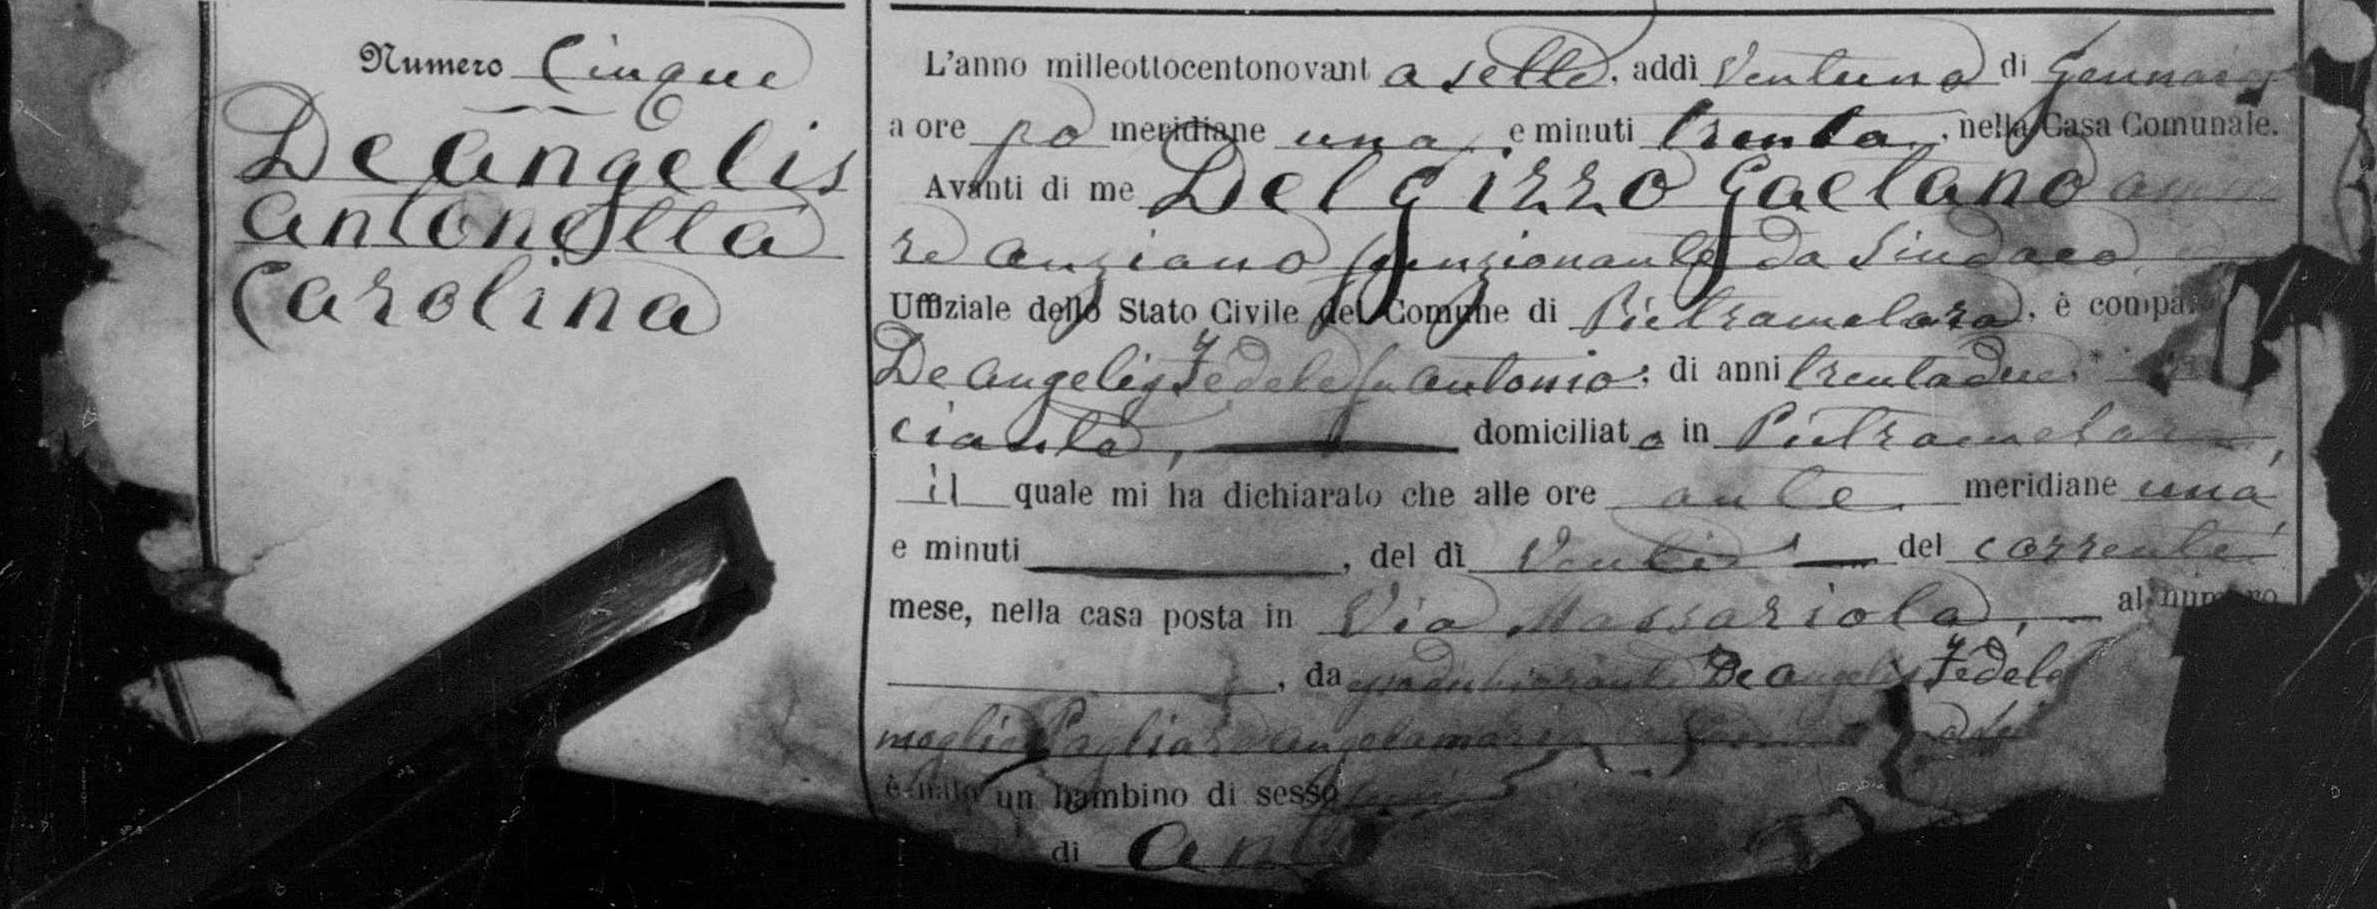 Numero Cinque
De Angelis
Antonella
Carolina
L'anno milleottocentonovant a sette, addì Ventuno di Gennaio
a ore po meridiane una, e minuti trenta, nella Casa Comunale.
Avanti di me Del Gizzo Gaetano
re anziano funzionante da Sindaco
Uffiziale dello Stato Civile del Comune di Pietramelara, è compa
De Angelis Fedele fu Antonio, di anni trentadue,
ciante, domiciliato in Pietramelara,
il quale mi ha dichiarato che alle ore ante meridiane una
e minuti, del dì Venti del corrente
mese, nella casa posta in Via Massariola, al numero
, da De Angelis Fedele
moglie Pagliaro Angelamaria
è nato un bambino di sesso
di An